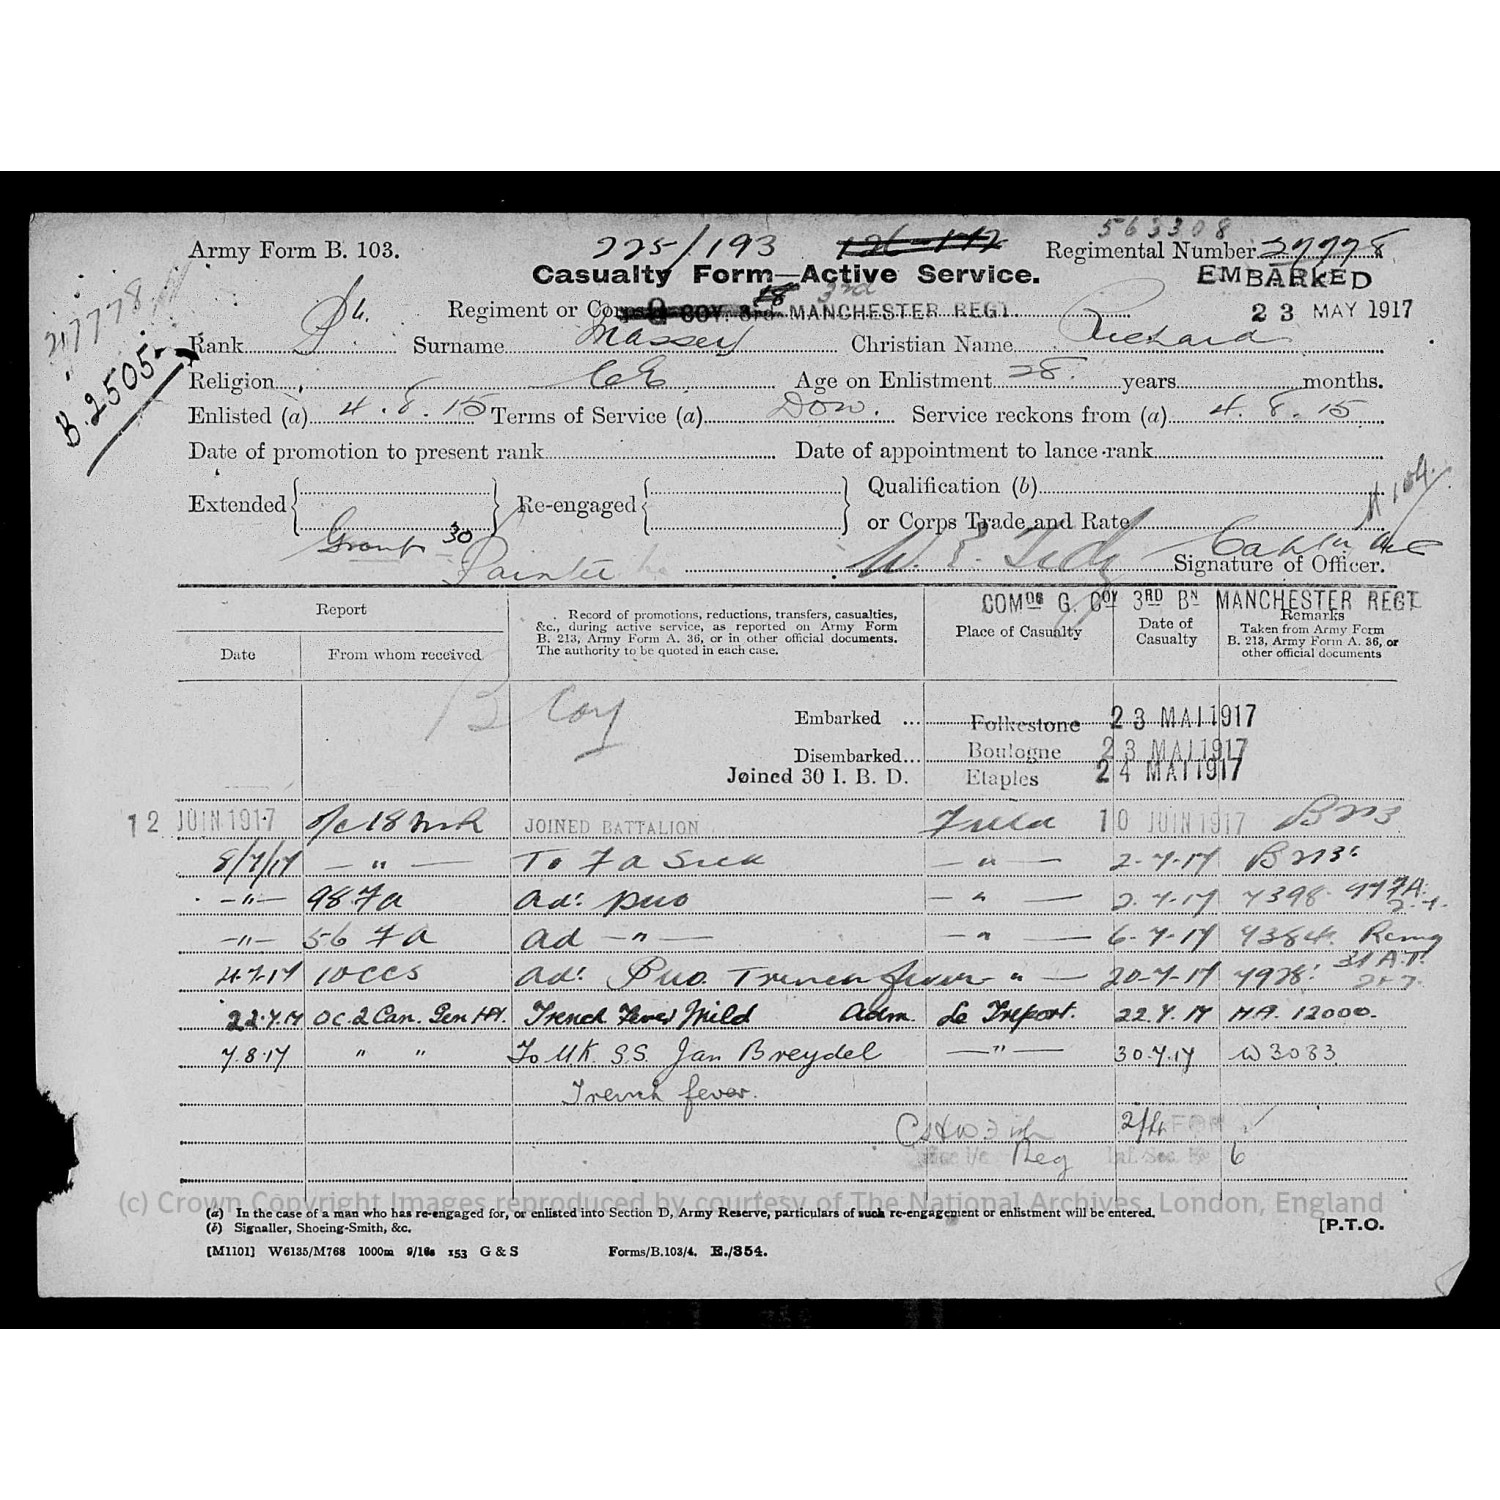 563308
Army Form B. 103. 225/193 Regimental Number 27778
Casualty Form—Active Service. EMBARKED
23 MAY 1917
27778
B.2505
Regiment or Corps 18 3rd MANCHESTER REGT.
Rank Pte. Surname Massey Christian Name Richard
Religion C of E Age on Enlistment 28 years months.
Enlisted (a) 4.8.15 Terms of Service (a) Dow. Service reckons from (a) 4.8.15
Date of promotion to present rank Date of appointment to lance-rank
Extended Re-engaged Qualification (b)
or Corps Trade and Rate
Group 30 Painter
Signature of Officer.
COMDG G. COY 3RD BN MANCHESTER REGT
Report
Date
From whom received
Record of promotions, reductions, transfers, casualties,
&c., during active service, as reported on Army Form
B. 213, Army Form A. 36, or in other official documents.
The authority to be quoted in each case.
Place of Casualty
Date of
Casualty
Remarks
Taken from Army Form
B. 213, Army Form A. 36, or
other official documents
B Coy
Embarked ... Folkestone 23 MAI 1917
Disembarked... Boulogne 23 MAI 1917
Joined 30 I. B. D. Etaples 24 MAI 1917
12 JUIN 1917 O/C 18 MR JOINED BATTALION Field 10 JUIN 1917 B213
8/7/17 — " — To FA Sick — " — 2-7-17 B213
— " — 98 FA Ad: PUO — " — 2.7.17 7398
— " — 56 FA Ad — " — — " — 6-7-17
10 CCS Ad: PUO. Trench fever — " — 20-7-17
22.7.17 OC. 2 Can. Gen Hpl. Trench Fever Mild Adm. Le Treport. 22.7.17 H.A. 12000.
7.8.17 " " To UK. S.S. Jan Breydel — " — 30.7.17 W 3083
Trench fever.
Reg Inf. Sec. No 6
(c) Crown Copyright Images reproduced by courtesy of The National Archives, London, England
(a) In the case of a man who has re-engaged for, or enlisted into Section D, Army Reserve, particulars of such re-engagement or enlistment will be entered.
(b) Signaller, Shoeing-Smith, &c.
[P.T.O.
[M1101] W6135/M768 1000m 9/16s 153 G & S Forms/B.103/4. E./354.